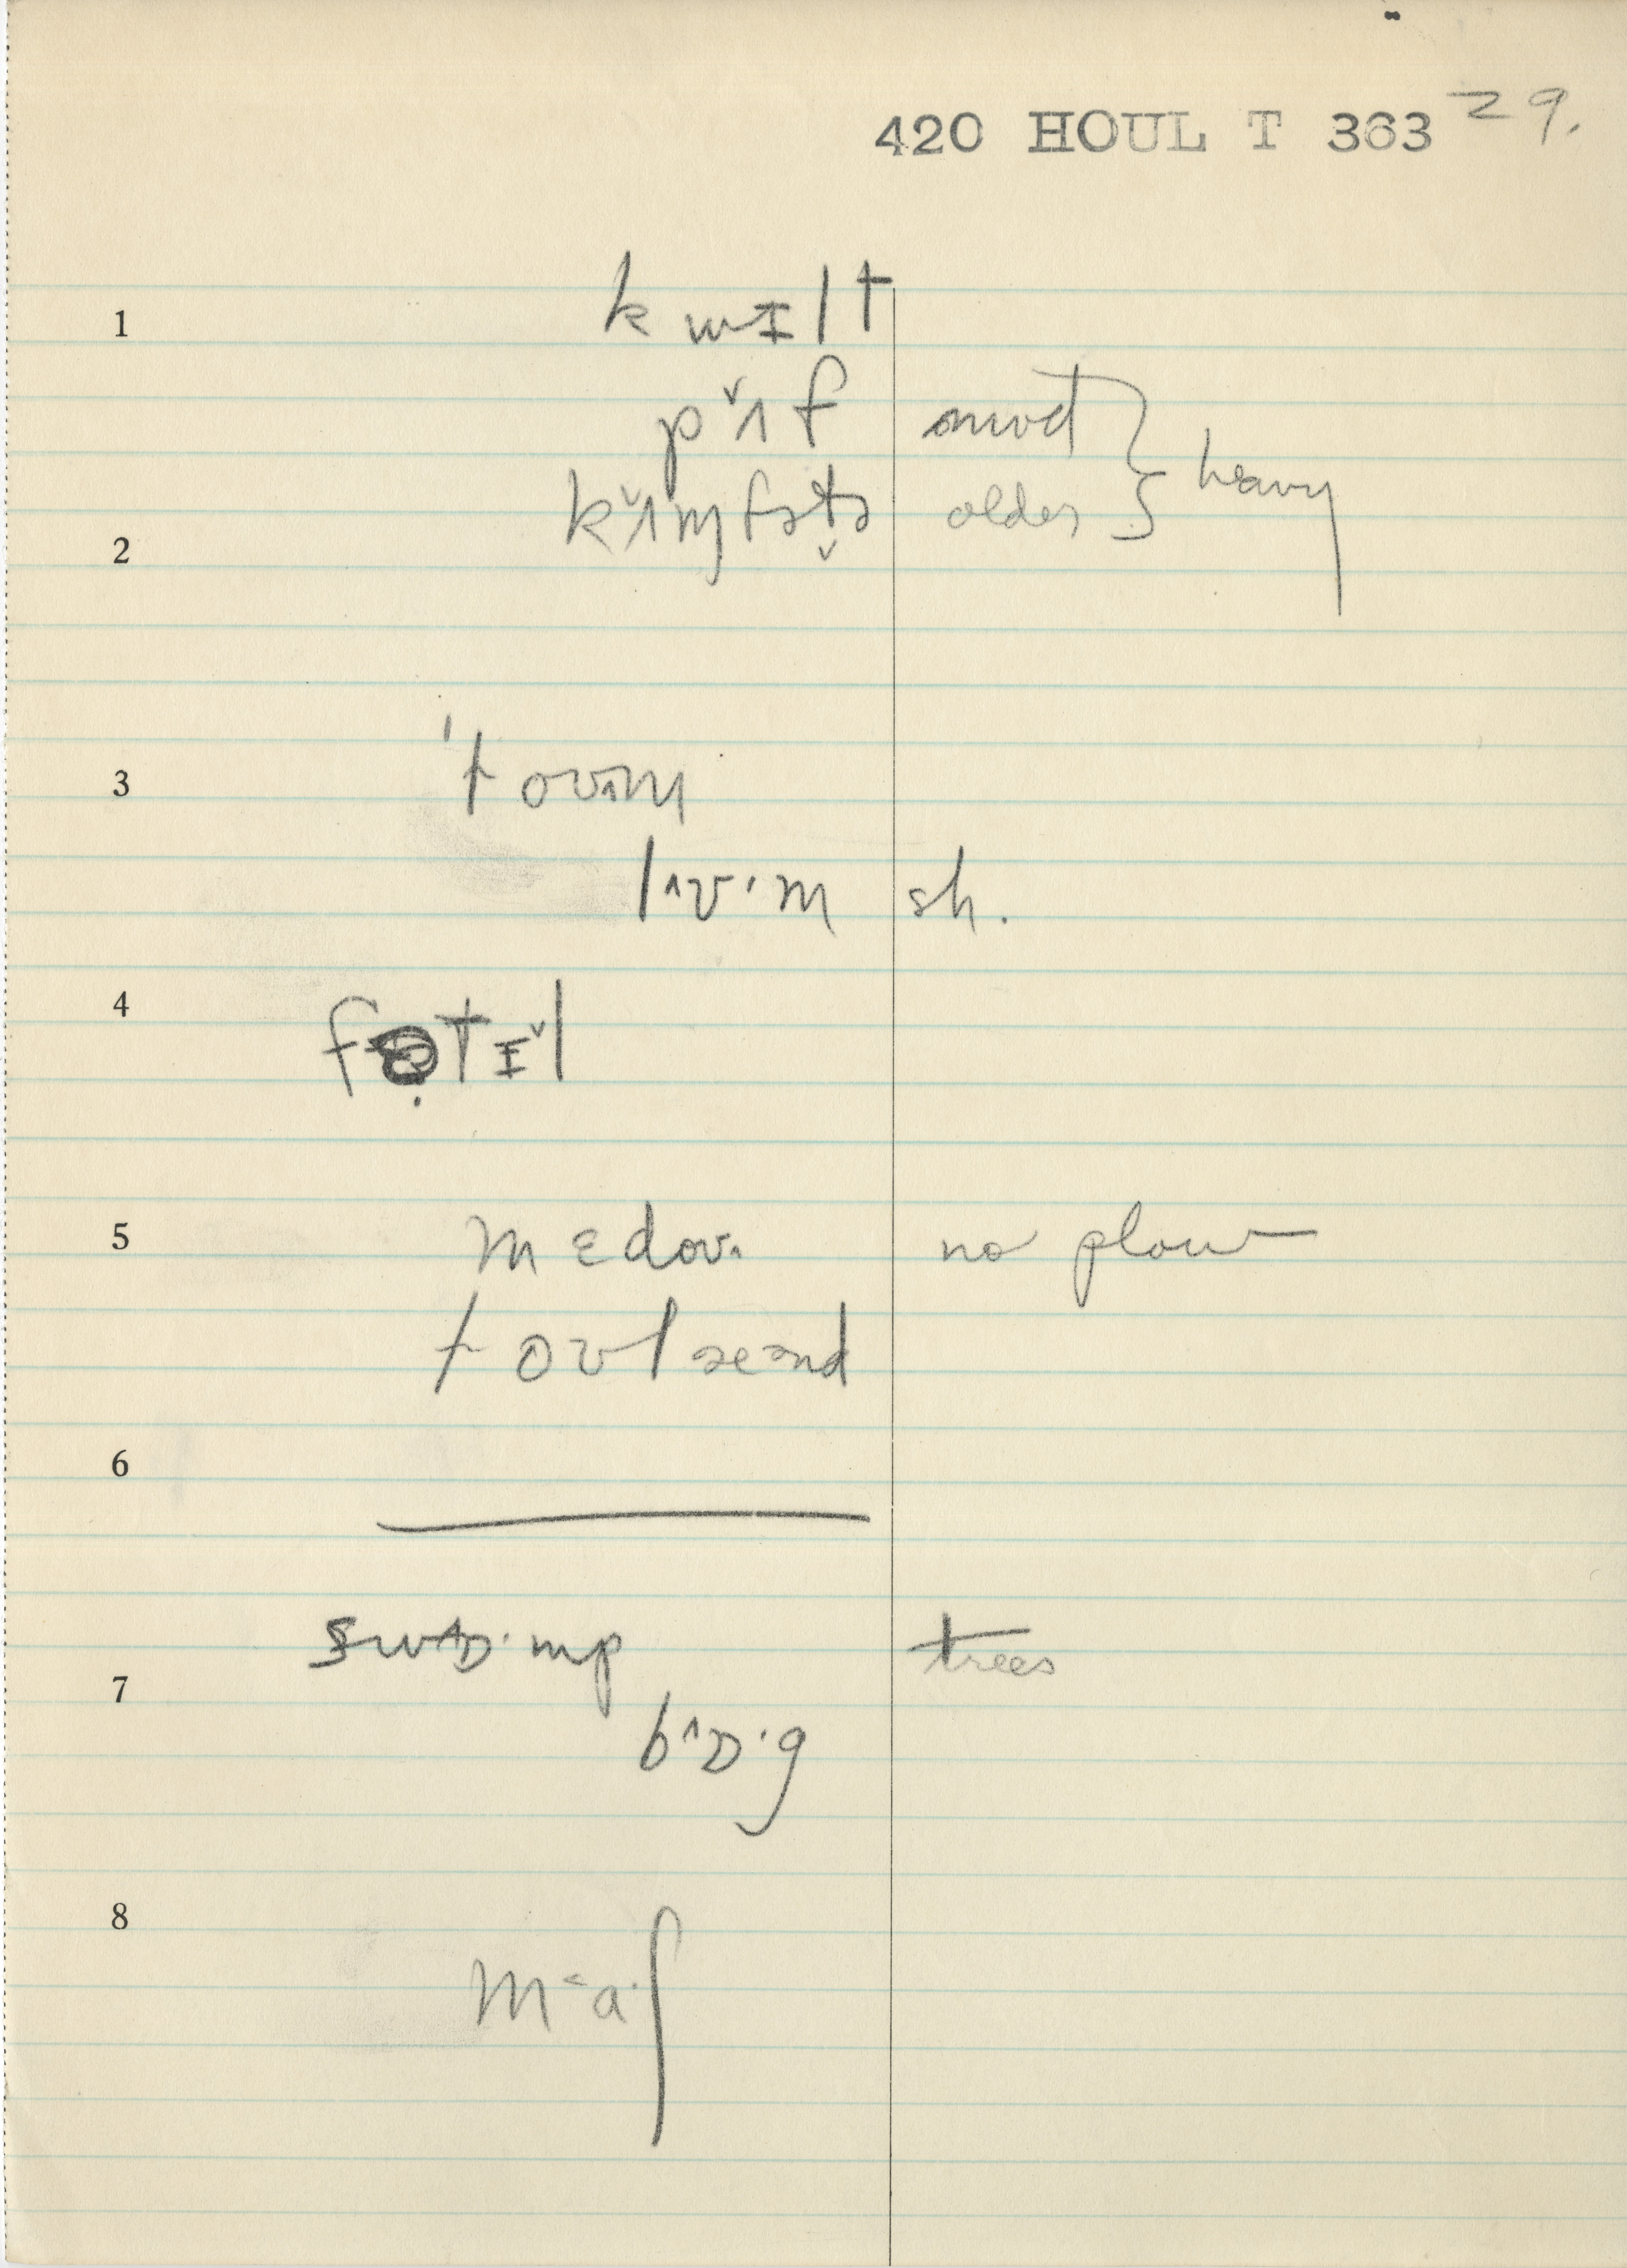 420 HOUL T 363 29.
1 kwɪlt
pʌ̌f mod } heavy
2 kʌ̌mfətə̬ older
3 'toʊʌm
lʌʊ·m sh.
4 fɵ̣tɪ̌l
5 mɛdoʊ. no plow
toʊlæənd
6
7 swɒ˄·mp trees
b˄ɒ·g
8 m˂a·ʃ